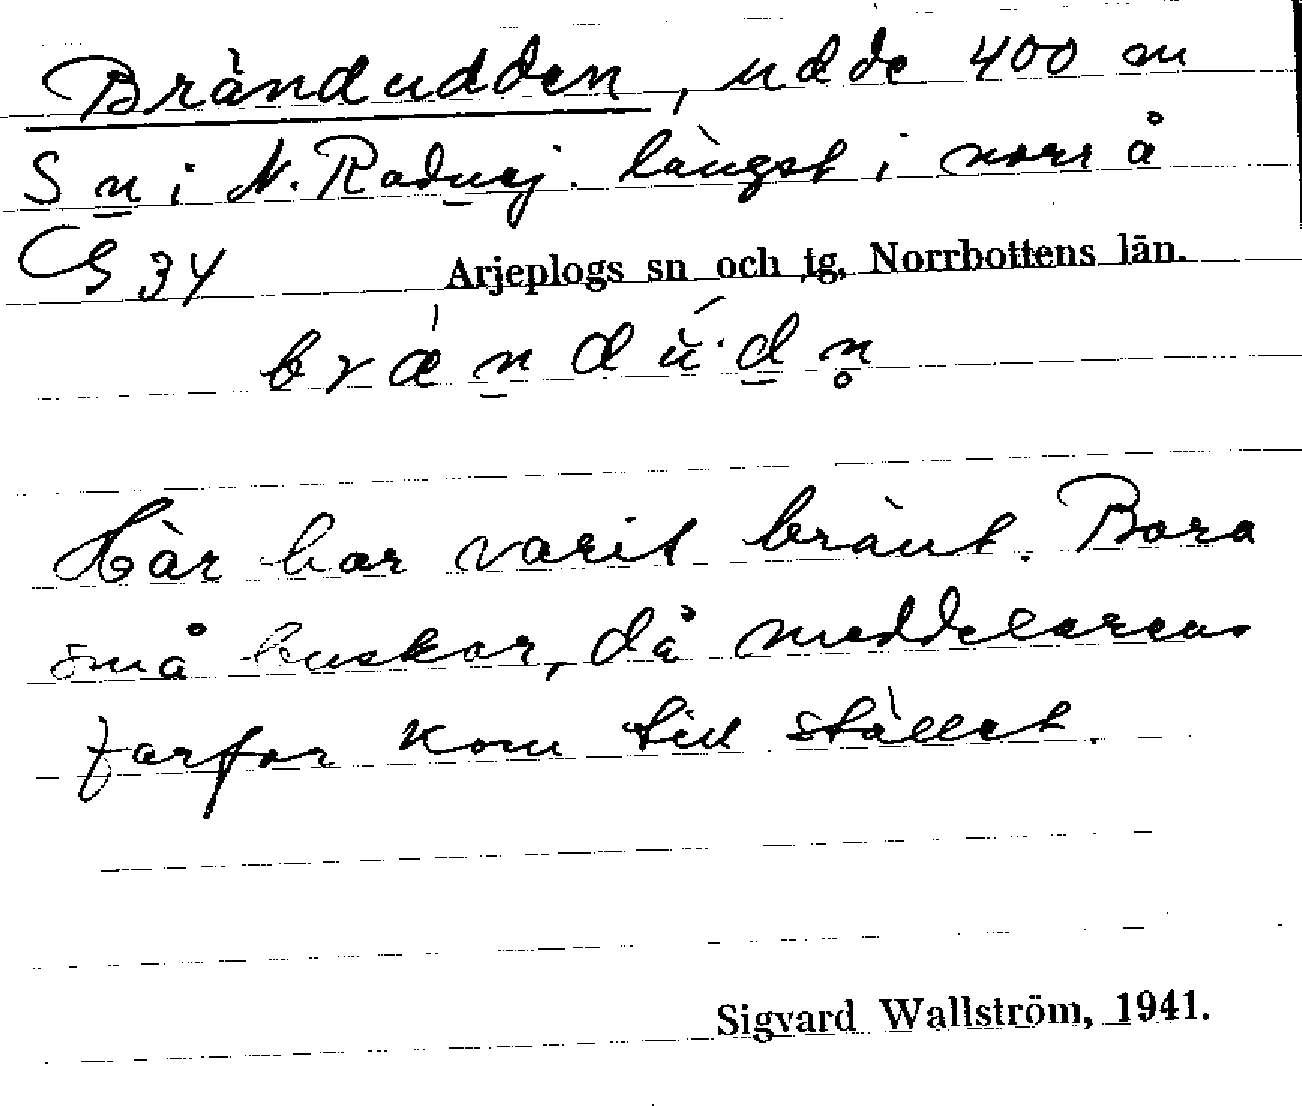 Brändudden, udde 400 m
S n i N. Radnej. längst i norr å
GS 34 Arjeplogs sn och tg, Norrbottens län.
brændŭ·dn̥
Här har varit bränt. Bara
små buskar, då meddelarens
farfar kom till stället.
Sigvard Wallström, 1941.